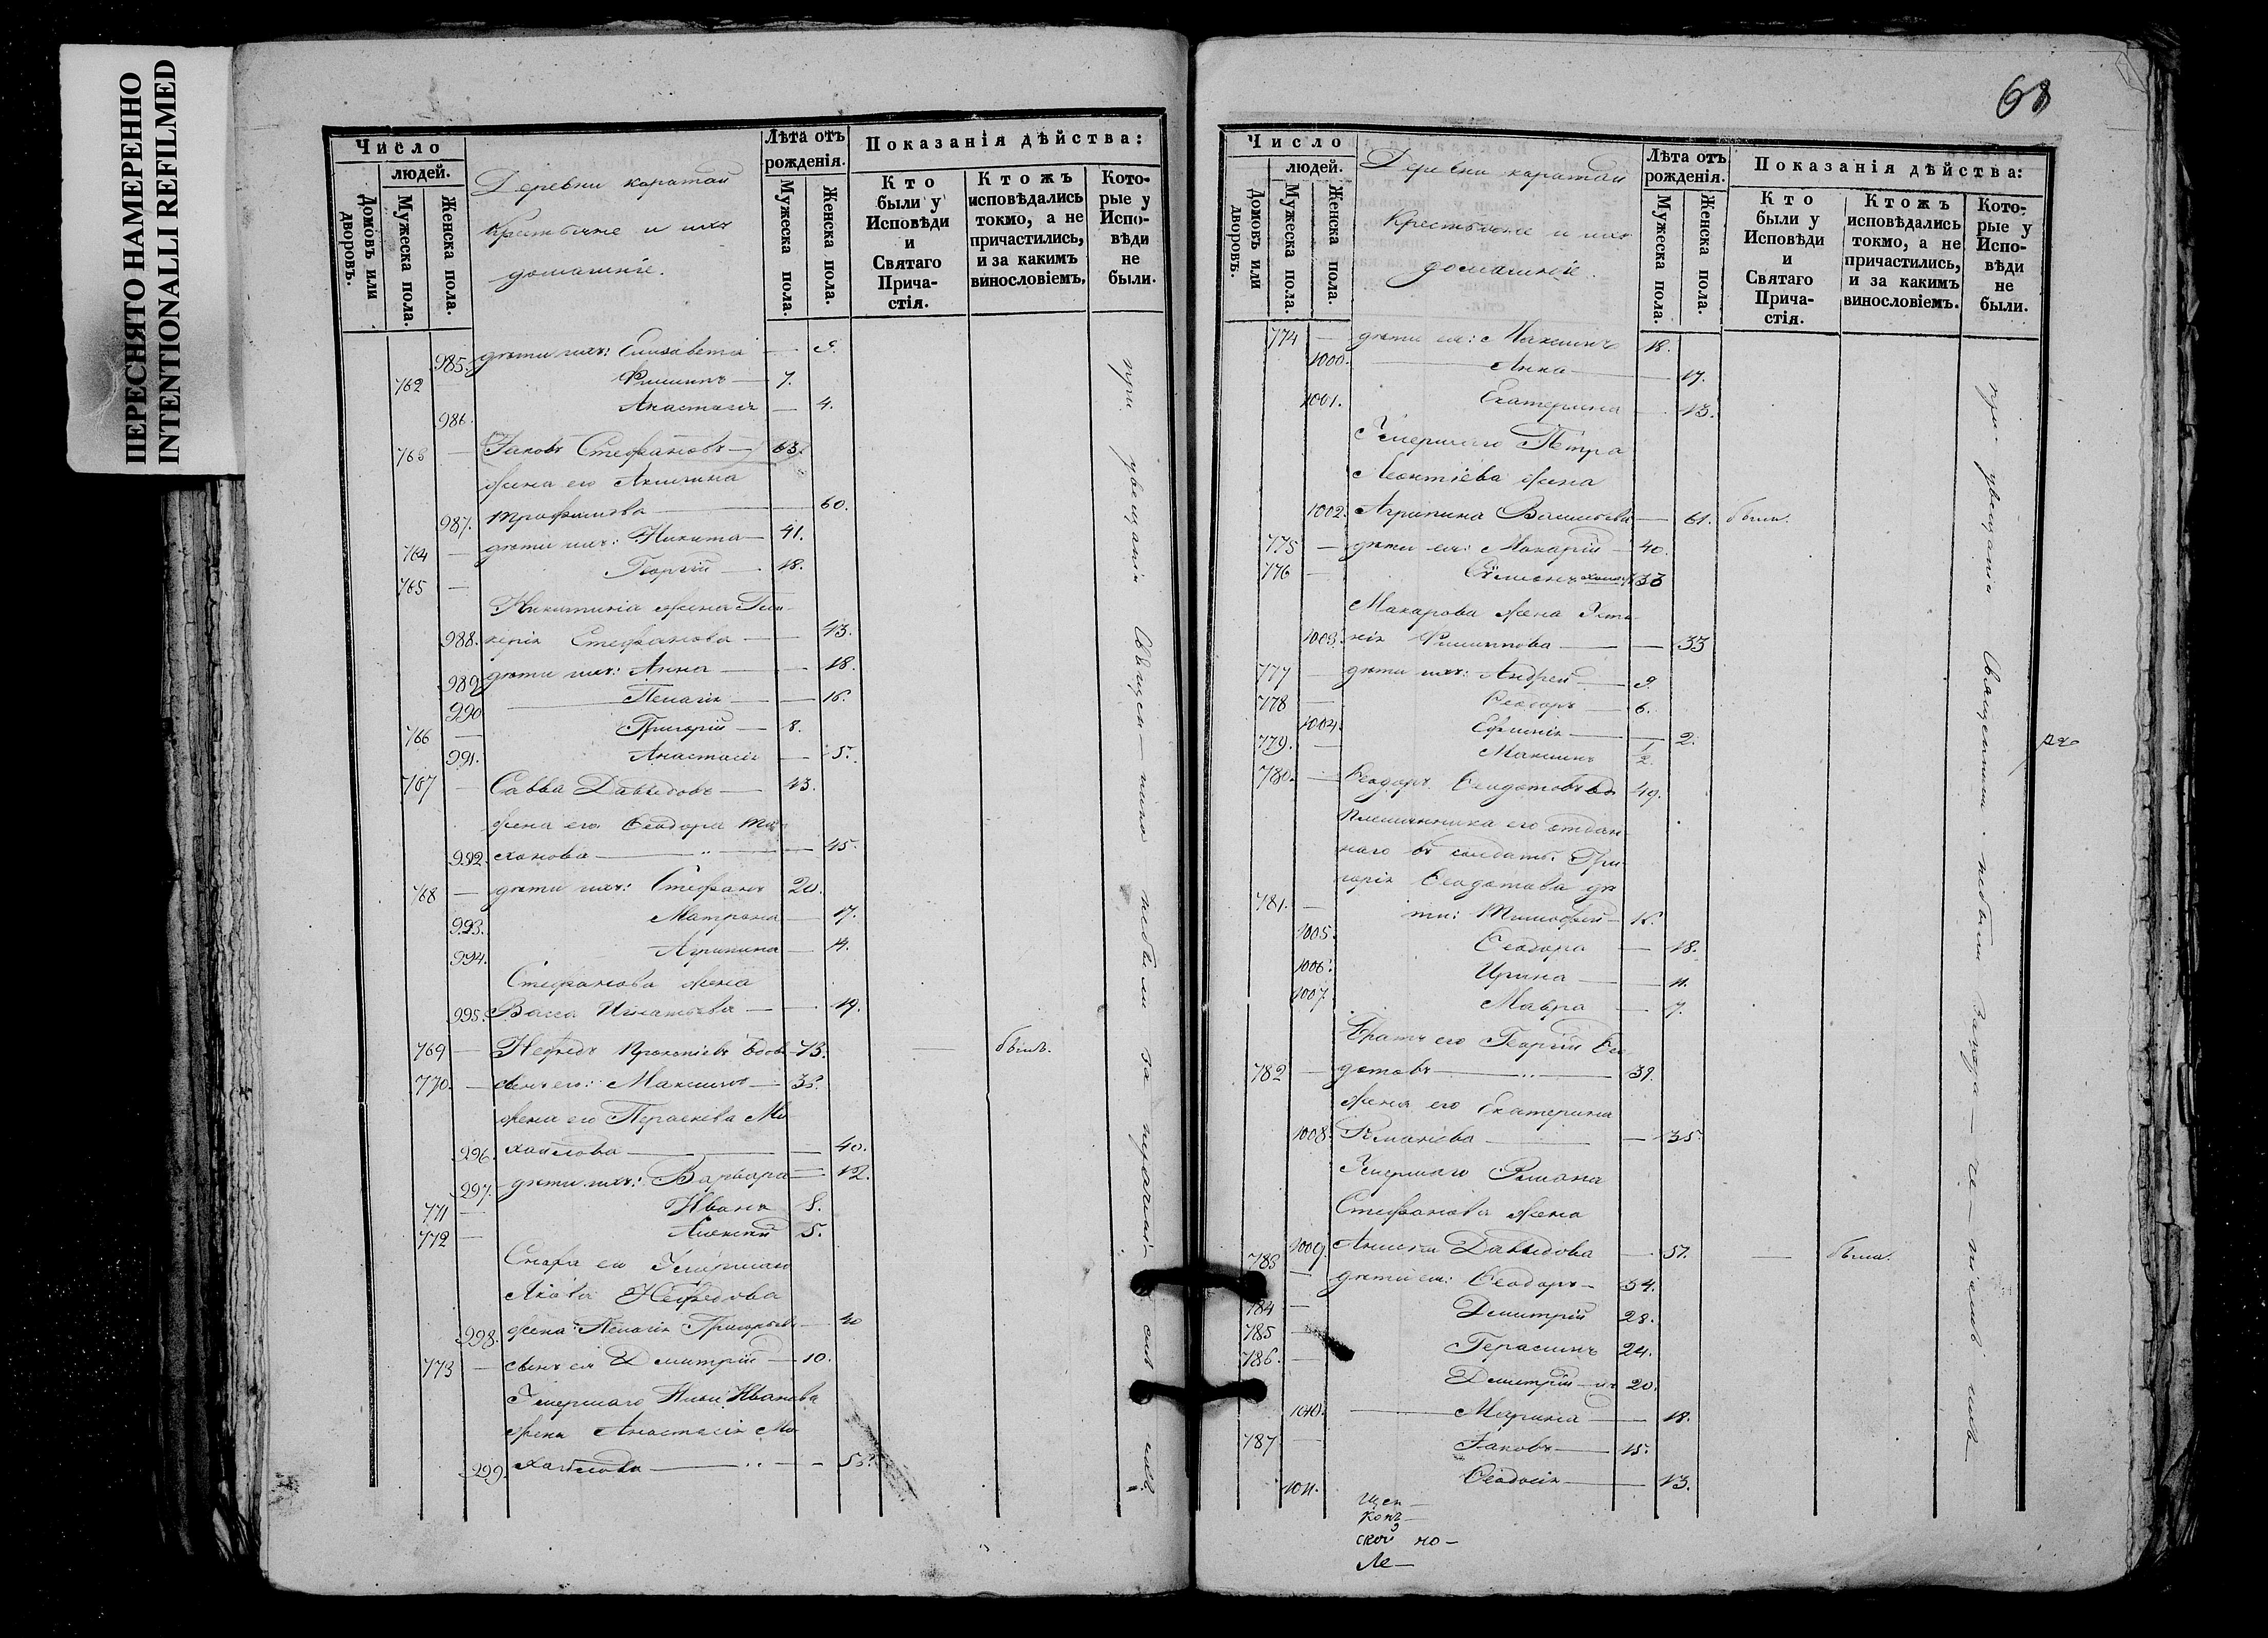 ПЕРЕСНЯТО НАМЕРЕННО
INTENTIONALLI REFILMED
Число
людей.
Домовъ или дворовъ.
Мужеска пола.
Женска пола.
Деревни каратай
Крестьяне и ихъ
домашніе.
Лѣта отъ рожденія.
Мужеска пола.
Женска пола.
Показанія дѣйства:
Кто были у Исповѣди и Святаго Прича-стія.
Ктожъ исповѣдались токмо, а не причастились, и за какимъ винословіемъ,
Кото-рые у Испо-вѣди не были.
985. дѣти ихъ: Елисавета — 9.
762 Филиппъ — 7.
986. Анастасія — 4.
763 — Іаковъ Стефановъ — 63.
жена его Акилина
987. Трофимова — 60.
764 — дѣти ихъ: Никита — 41.
765 — Георгій — 18.
Никитина жена Гли-
988. керія Стефанова — 43.
989 дѣти ихъ: Анна — 18.
990 Пелагія — 16.
766 — Григорій — 8.
991. Анастасія — 5.
767 — Савва Давыдовъ — 43.
жена его Ѳеодора
992. — 45.
768 — дѣти ихъ: Стефанъ 20.
993. Матрона — 17.
994. Агрипина — 14.
Стефанова жена
995. Васса Игнатьева — 19.
769 — Нефедъ Прокопіевъ вдовъ 73. — былъ.
770. — сынъ его: Максимъ — 35.
жена его Параскева Ми
996. хайлова — 40.
997. дѣти ихъ: Варвара — 12.
771 — Иванъ 8.
772 — Алексѣй 5.
Сноха его Умершаго
Якова Нефедова
998. жена: Пелагія Григорьева — 40
773 — сынъ ея Дмитрій — 10.
Умершаго Ильи Иванова
жена Анастасія Ми
999. хайлова — 55.
при увещаніи Священ — небыли
68
Число
людей.
Домовъ или дворовъ.
Мужеска пола.
Женска пола.
Деревни каратай
Крестьяне и ихъ
домашніе.
Лѣта отъ рожденія.
Мужеска пола.
Женска пола.
Показанія дѣйства:
Кто были у Исповѣди и Святаго Прича-стія.
Ктожъ исповѣдались токмо, а не причастились, и за какимъ винословіемъ.
Кото-рые у Испо-вѣди не были.
774 — дѣти ея: Максимъ 18.
1000. Анна — 17.
1001. Екатерина — 13.
Умершаго Петра
Леонтіева жена
1002. Агрипина Васильева — 61. была.
775 — дѣти ея: Макарій — 40.
776 — Симеонъ холостъ 33
Макарова жена Усти-
1003. нія Филиппова — 33
777 — дѣти ихъ: Андрей — 9.
778 — Ѳеодоръ — 6.
1004. Ефимія — 2.
779. — Максимъ 1/2.
780. — Ѳеодоръ Ѳеодотовъ вд 49.
Племянника его отдан-
наго въ солдаты Гри-
горія Ѳеодотова дѣ
781. — ти: Тимофей — 16.
1005. Ѳеодора — 18.
1006. Ирина — 11.
1007. Мавра — 7.
Братъ его Георгій Ѳео
782 — дотовъ — 39.
жена его Екатерина
1008. — 35.
Умершаго Романа
Стефанова жена
1009. Анисья Давыдова — 57. — была.
783 — дѣти ея: Ѳеодоръ — 34.
784 — Дмитрій 28.
785 — Герасимъ 24.
786. — Дмитрій 20.
1010. Марина — 18.
787 — Іаковъ — 15.
1011. Ѳеодосія — 13.
при увещаніи Священника небыли
щен —
Конъ —
ской но —
Ле —